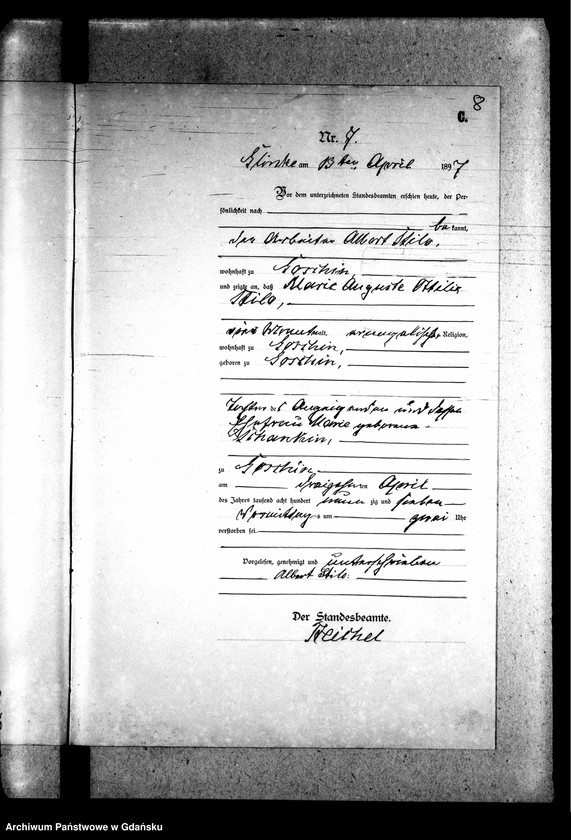 8
C.
Nr. 7.
am 13 ten April 1897
Vor dem unterzeichneten Standesbeamten erschien heute, der Per-
sönlichkeit nach
be kannt,
der Arbeiter Albert Stilo,
wohnhaft zu Goschin,
und zeigte an, daß Marie Auguste Ottilie
Stilo,
vier Monat alt, evangelischer Religion,
wohnhaft zu Goschin,
geboren zu Goschin,
Tochter des Anzeigenden und dessen
Ehefrau Marie geborenen
zu Goschin
am dreizehnten April
des Jahres tausend acht hundert neun zig und sieben
Vormittags um zwei Uhr
verstorben sei.
Vorgelesen, genehmigt und unterschrieben
Albert Stilo.
Der Standesbeamte.
Archiwum Państwowe w Gdańsku